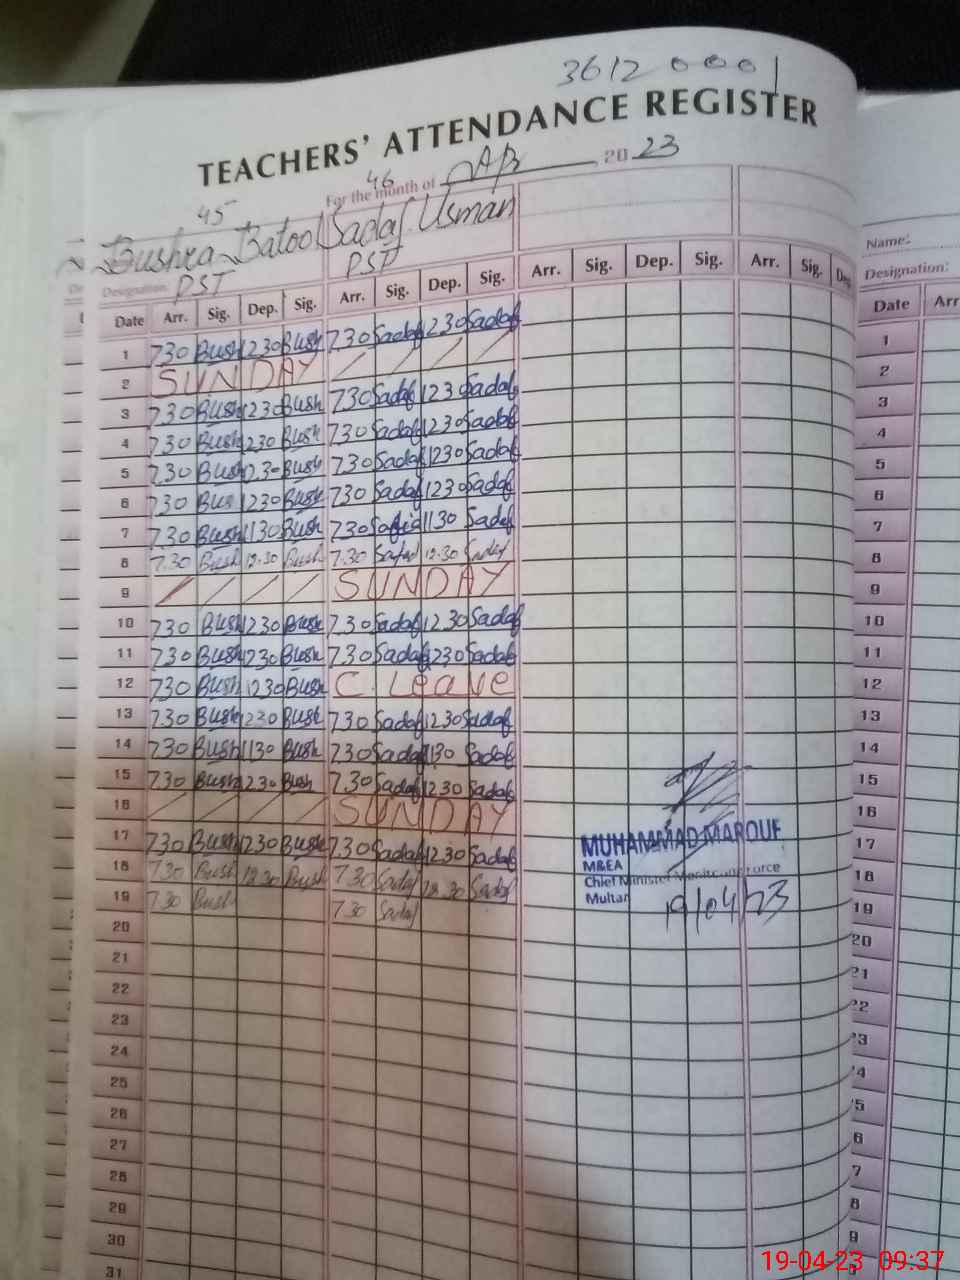 36120001
TEACHERS' ATTENDANCE REGISTER
For the month of Apr 2023
45 46
Bushra Batool Sadaf Usman
Designation: PST PST
Date Arr. Sig. Dep. Sig. Arr. Sig. Dep. Sig. Arr. Sig. Dep. Sig. Arr. Sig. Dep
1 7.30 Bush 12.30 Bush 7.30 Sadaf 12.30 Sadaf
2 SUNDAY / / / /
3 7.30 Bush 12.30 Bush 7.30 Sadaf 12.30 Sadaf
4 7.30 Bush 12.30 Bush 7.30 Sadaf 12.30 Sadaf
5 7.30 Bush 12.30 Bush 7.30 Sadaf 12.30 Sadaf
6 7.30 Bush 12.30 Bush 7.30 Sadaf 12.30 Sadaf
7 7.30 Bush 11.30 Bush 7.30 11.30 Sadaf
8 7.30 Bush 12.30 Bush 7.30 Sadaf 12.30 Sadaf
9 / / / / SUNDAY
10 7.30 Bush 12.30 Bush 7.30 Sadaf 12.30 Sadaf
11 7.30 Bush 12.30 Bush 7.30 Sadaf 12.30 Sadaf
12 7.30 Bush 12.30 Bush C. Leave
13 7.30 Bush 12.30 Bush 7.30 Sadaf 12.30 Sadaf
14 7.30 Bush 11.30 Bush 7.30 Sadaf 11.30 Sadaf
15 7.30 Bush 12.30 Bush 7.30 Sadaf 12.30 Sadaf
16 / / / / SUNDAY
17 7.30 Bush 12.30 Bush 7.30 Sadaf 12.30 Sadaf
18 7.30 Bush 12.30 Bush 7.30 Sadaf 12.30 Sadaf
19 7.30 Bush 7.30 Sadaf
20
21
22
23
24
25
26
27
28
29
30
31
MUHAMMAD MAROUF
M&EA
Chief Minister Monitoring Force
Multan
19/04/23
Name:
Designation:
Date Arr
1
2
3
4
5
6
7
8
9
10
11
12
13
14
15
16
17
18
19
20
21
22
23
24
25
26
27
28
29
19-04-23 09:37